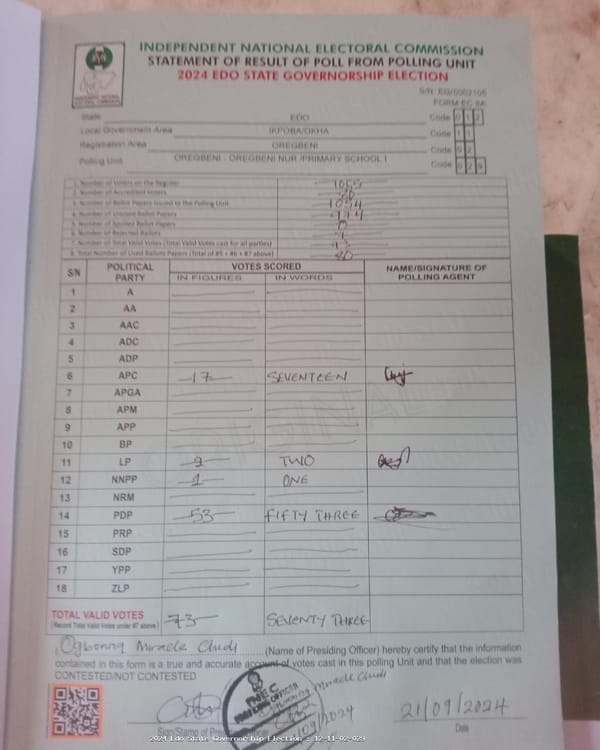 INDEPENDENT NATIONAL ELECTORAL COMMISSION
STATEMENT OF RESULT OF POLL FROM POLLING UNIT
2024 EDO STATE GOVERNORSHIP ELECTION
FORM EC 8A
State EDO Code 0 1 2
Local Government Area IKPOBA/OKHA Code 1 1
Registration Area OREGBENI Code 0 2
Polling Unit OREGBENI - OREGBENI NUR./PRIMARY SCHOOL I Code 0 2 9
1. Number of Voters on the Register 1055
2. Number of Accredited Voters
3. Number of Ballot Papers Issued to the Polling Unit 1054
4. Number of Unused Ballot Papers
5. Number of Spoiled Ballot Papers 0
6. Number of Rejected Ballots
7. Number of Total Valid Votes (Total Valid Votes cast for all parties) 73
8. Total Number of Used Ballots Papers (Total of #5 + #6 + #7 above)
S/N POLITICAL PARTY VOTES SCORED NAME/SIGNATURE OF POLLING AGENT
IN FIGURES IN WORDS
1 A
2 AA
3 AAC
4 ADC
5 ADP
6 APC 17 SEVENTEEN
7 APGA
8 APM
9 APP
10 BP
11 LP 2 TWO
12 NNPP 1 ONE
13 NRM
14 PDP 53 FIFTY THREE
15 PRP
16 SDP
17 YPP
18 ZLP
TOTAL VALID VOTES 73 SEVENTY THREE
(Record Total Valid Votes under #7 above)
I, Ogbonna Miracle Chidi (Name of Presiding Officer) hereby certify that the information
contained in this form is a true and accurate account of votes cast in this polling Unit and that the election was
CONTESTED/NOT CONTESTED
Miracle Chidi
21/09/2024
Sign/Stamp of Date
2024 Edo State Governorship Election - 12-11-02-029